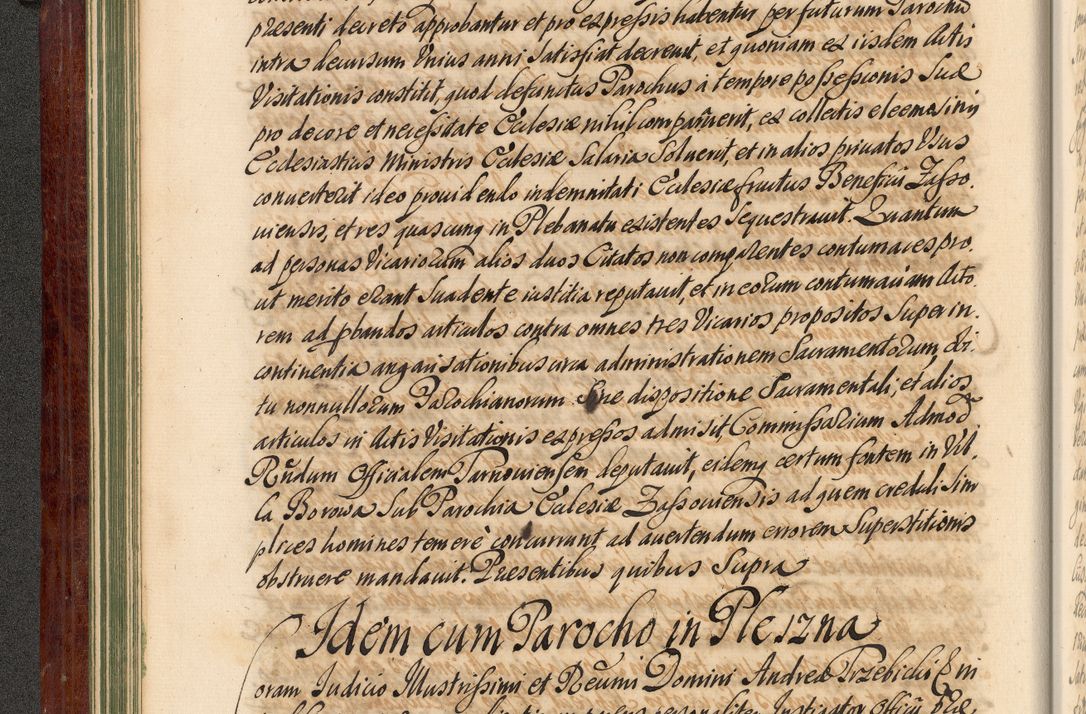 præsenti decreto approbantur et pro expressis habentur per futurum Parochū
intra decursum Unius anni Satisfiat decrevit, et quoniam ex iisdem Actis
Visitationis constitit, quod defunctus Parochus à tempore possessionis Suæ
pro decore et necessitate Ecclesiæ nihil comparuerit, ex collectis eleemosinis
Ecclesiasticis Ministris Ecclesiæ Salaria Solverit, et in alios privatos Usus
converterit ideo providendo indemnitati Ecclesiæ fructus Beneficii Zasso.
viensis, et res quascunq in Plebanatu existentes Sequestravit. Quantum
ad personas Vicariorum alios duos Citatos non comparentes contumaces pro,
ut merito erant Suadente iustitia reputavit, et in eorum contumaciam Acto.
rem ad pbandos articulos contra omnes tres Vicarios propositos Super in.
continentia angarisationibus circa administrationem Sacramentorum, Obi.
tu nonnullorum Parochianorum Sine dispositione Sacramentali, et alios
articulos in Actis Visitationis expressos admisit, Commissarium Admod.
Rndum Officialem Tarnoviensem deputavit, eidemq certum fontem in Vil.
la Borowa Sub Parochia Ecclesiæ Zassoviensis ad quem creduli Sim
plices homines temerè concurrunt ad avertendum errorem Superstitionis
obstruere mandavit. Præsentibus quibus Supra
Idem cum Parocho in Pleszna
oram Iudicio Illustrissimi et Reumi Domini Andreæ Trzebicki Epi